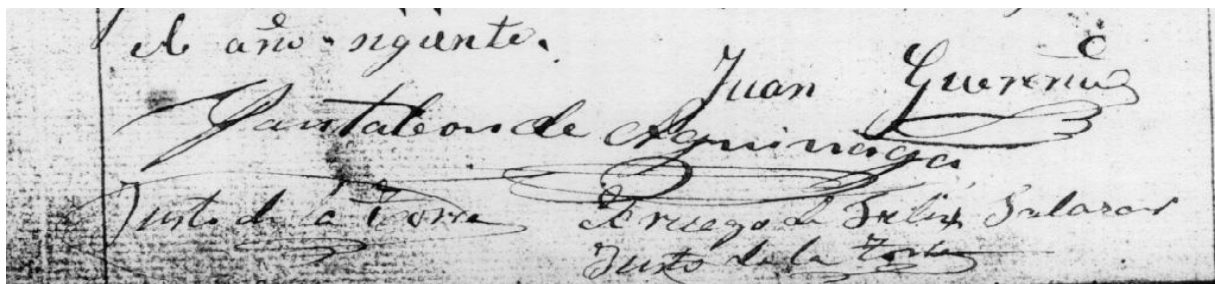 el año siguiente.
Juan Guereñu
Pantaleon de Aguinaga
Justo de la Torre
A ruego de Felix Salazar
Justo de la Torre